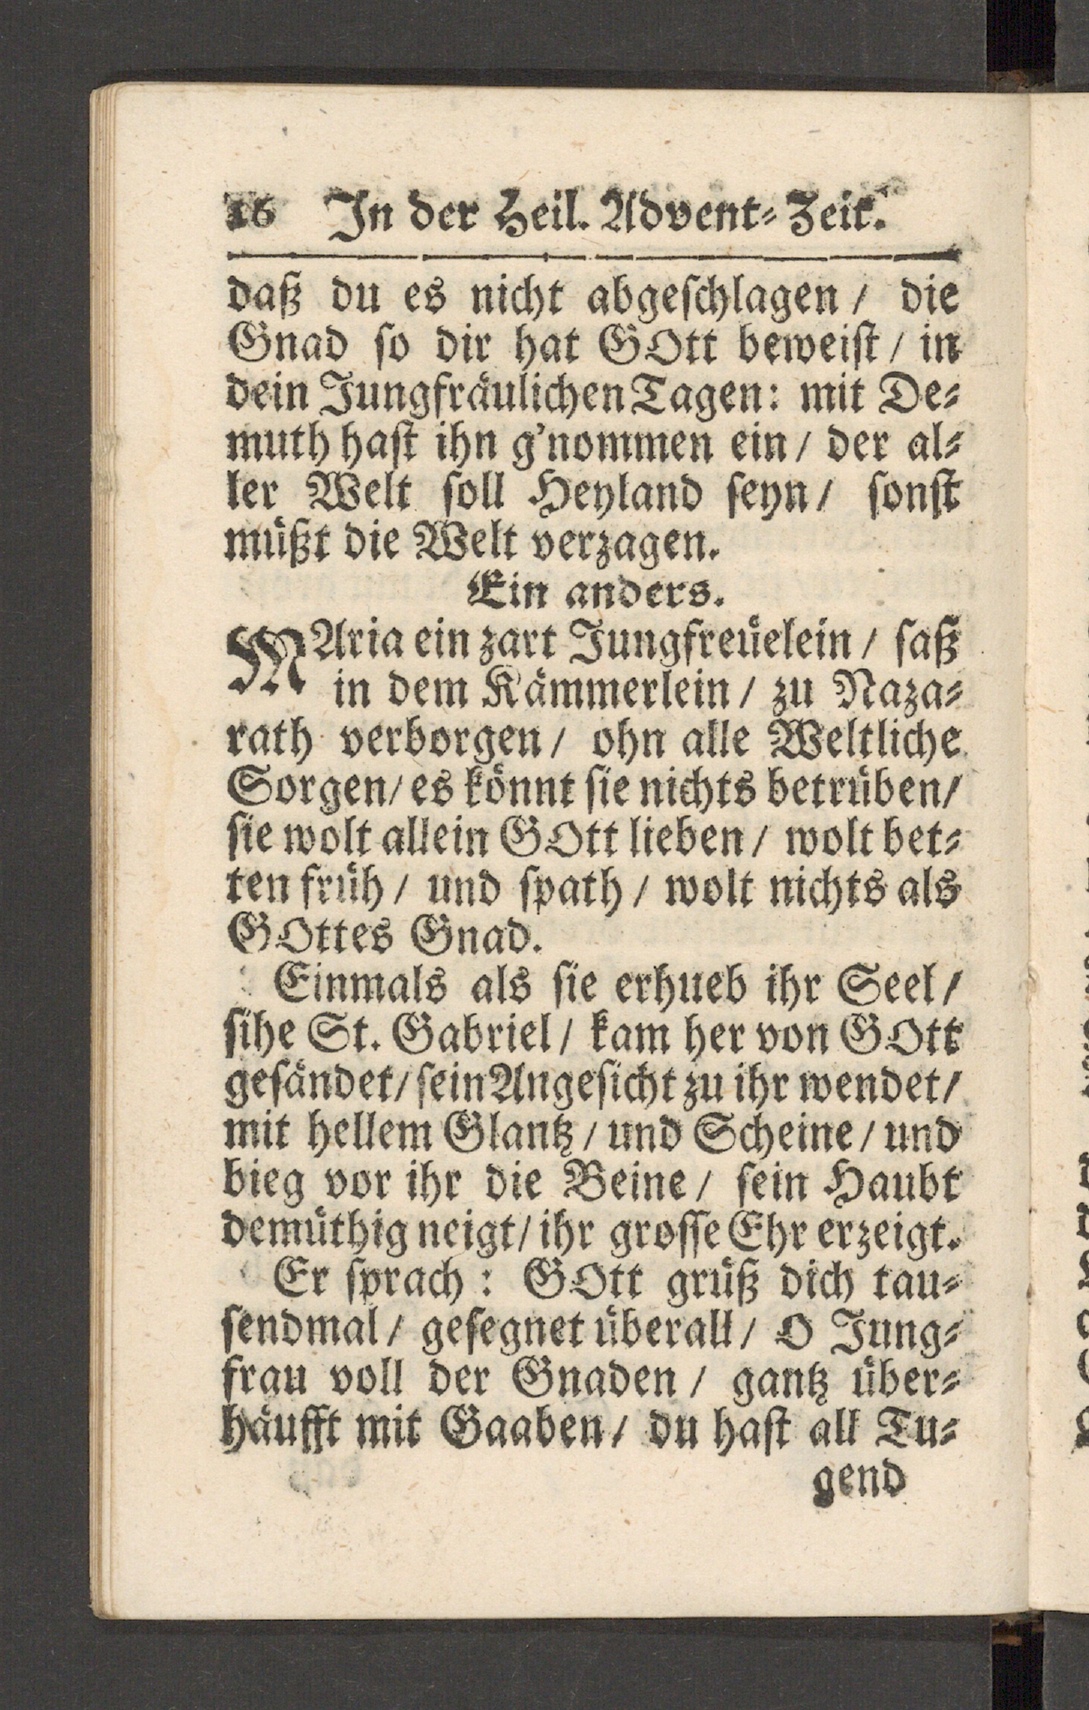 16 In der Heil. Advent-Zeit.
daß du es nicht abgeschlagen / die
Gnad so dir hat GOtt beweist / in
dein Jungfräulichen Tagen: mit De-
muth hast ihn g'nommen ein / der al-
ler Welt soll Heyland seyn / sonst
müßt die Welt verzagen.
Ein anders.
MAria ein zart Jungfreüelein / saß
in dem Kämmerlein / zu Naza-
rath verborgen / ohn alle Weltliche
Sorgen / es könnt sie nichts betrüben /
sie wolt allein GOtt lieben / wolt bet-
ten früh / und spath / wolt nichts als
GOttes Gnad.
Einmals als sie erhueb ihr Seel /
sihe St. Gabriel / kam her von GOtt
gesändet / sein Angesicht zu ihr wendet /
mit hellem Glantz / und Scheine / und
bieg vor ihr die Beine / sein Haubt
demüthig neigt / ihr grosse Ehr erzeigt.
Er sprach : GOtt grüß dich tau-
sendmal / gesegnet überall / O Jung-
frau voll der Gnaden / gantz über-
häufft mit Gaaben / du hast all Tu-
gend